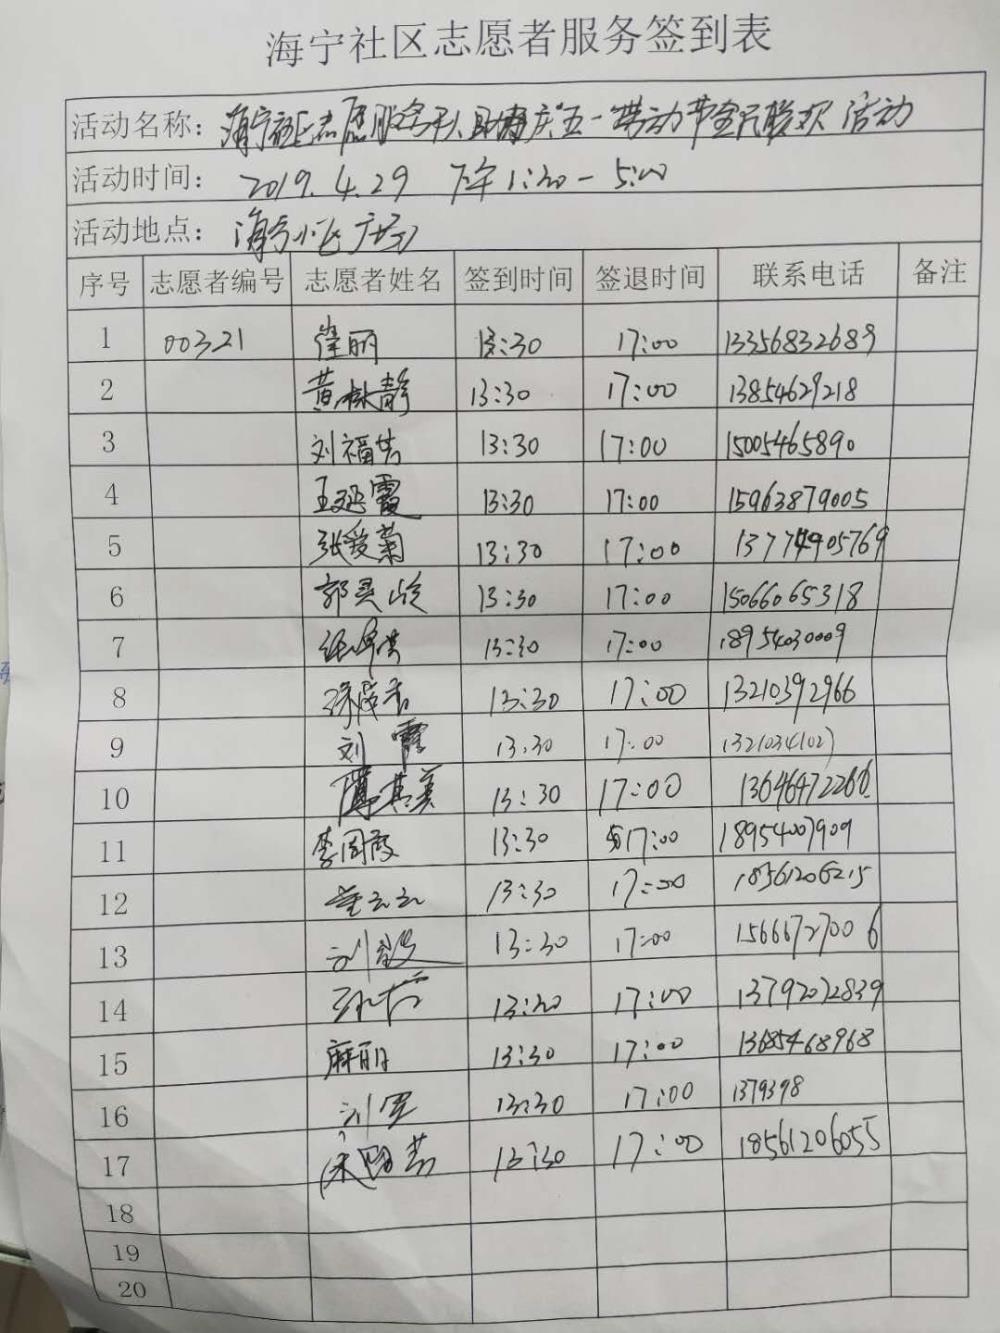 海宁社区志愿者服务签到表
活动名称：海宁社区志愿服务队助力庆"五一"劳动节全民联欢活动
活动时间：2019.4.29 下午1:30-5:00
活动地点：海宁小区广场
序号 志愿者编号 志愿者姓名 签到时间 签退时间 联系电话 备注
1 00321 崔丽 13:30 17:00 13356832689
2 黄林静 13:30 17:00 13854629218
3 刘福芳 13:30 17:00 15005465890
4 王延霞 13:30 17:00 15963879005
5 张爱菊 13:30 17:00 13774905769
6 郭灵 13:30 17:00 15066065318
7 13:30 17:00 18954030009
8 13:30 17:00 13210392966
9 刘霞 13:30 17:00 13210341027
10 薄其美 13:30 17:00 13646472266
11 李同霞 13:30 17:00 18954007909
12 董云云 13:30 17:00 18561206215
13 刘 13:30 17:00 15666727006
14 13:30 17:00 13792072839
15 麻丽 13:30 17:00 13685468968
16 刘军 13:30 17:00 1379398
17 13:30 17:00 18561206055
18
19
20